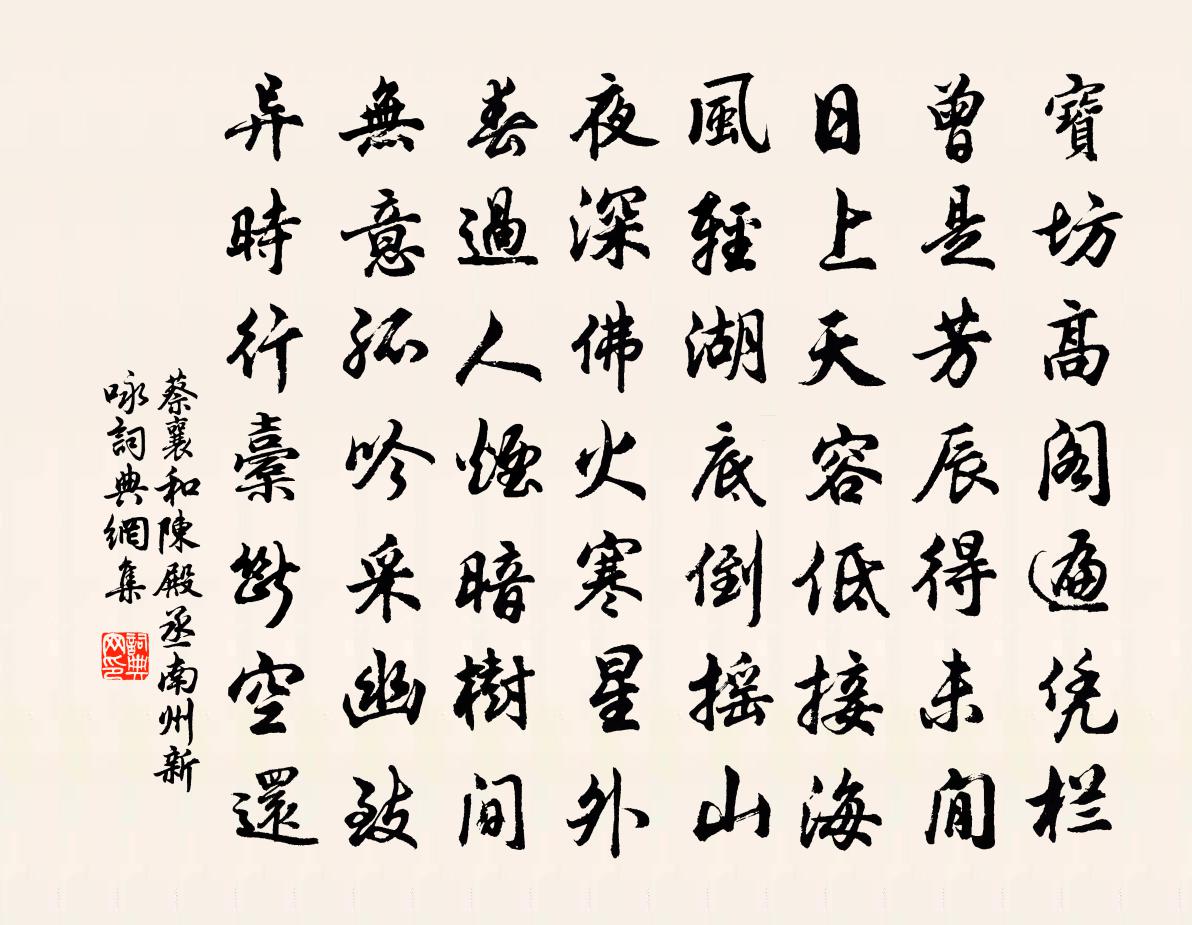 寶坊高閣遍凭栏
曾是芳辰得未閒
日上天容低接海
風輕湖底倒摇山
夜深佛火寒星外
春過人煙暗樹間
無意孤吟采幽致
异時行橐斷空還
蔡襄和陳殿丞南州新
咏詞典網集
詞典
网印